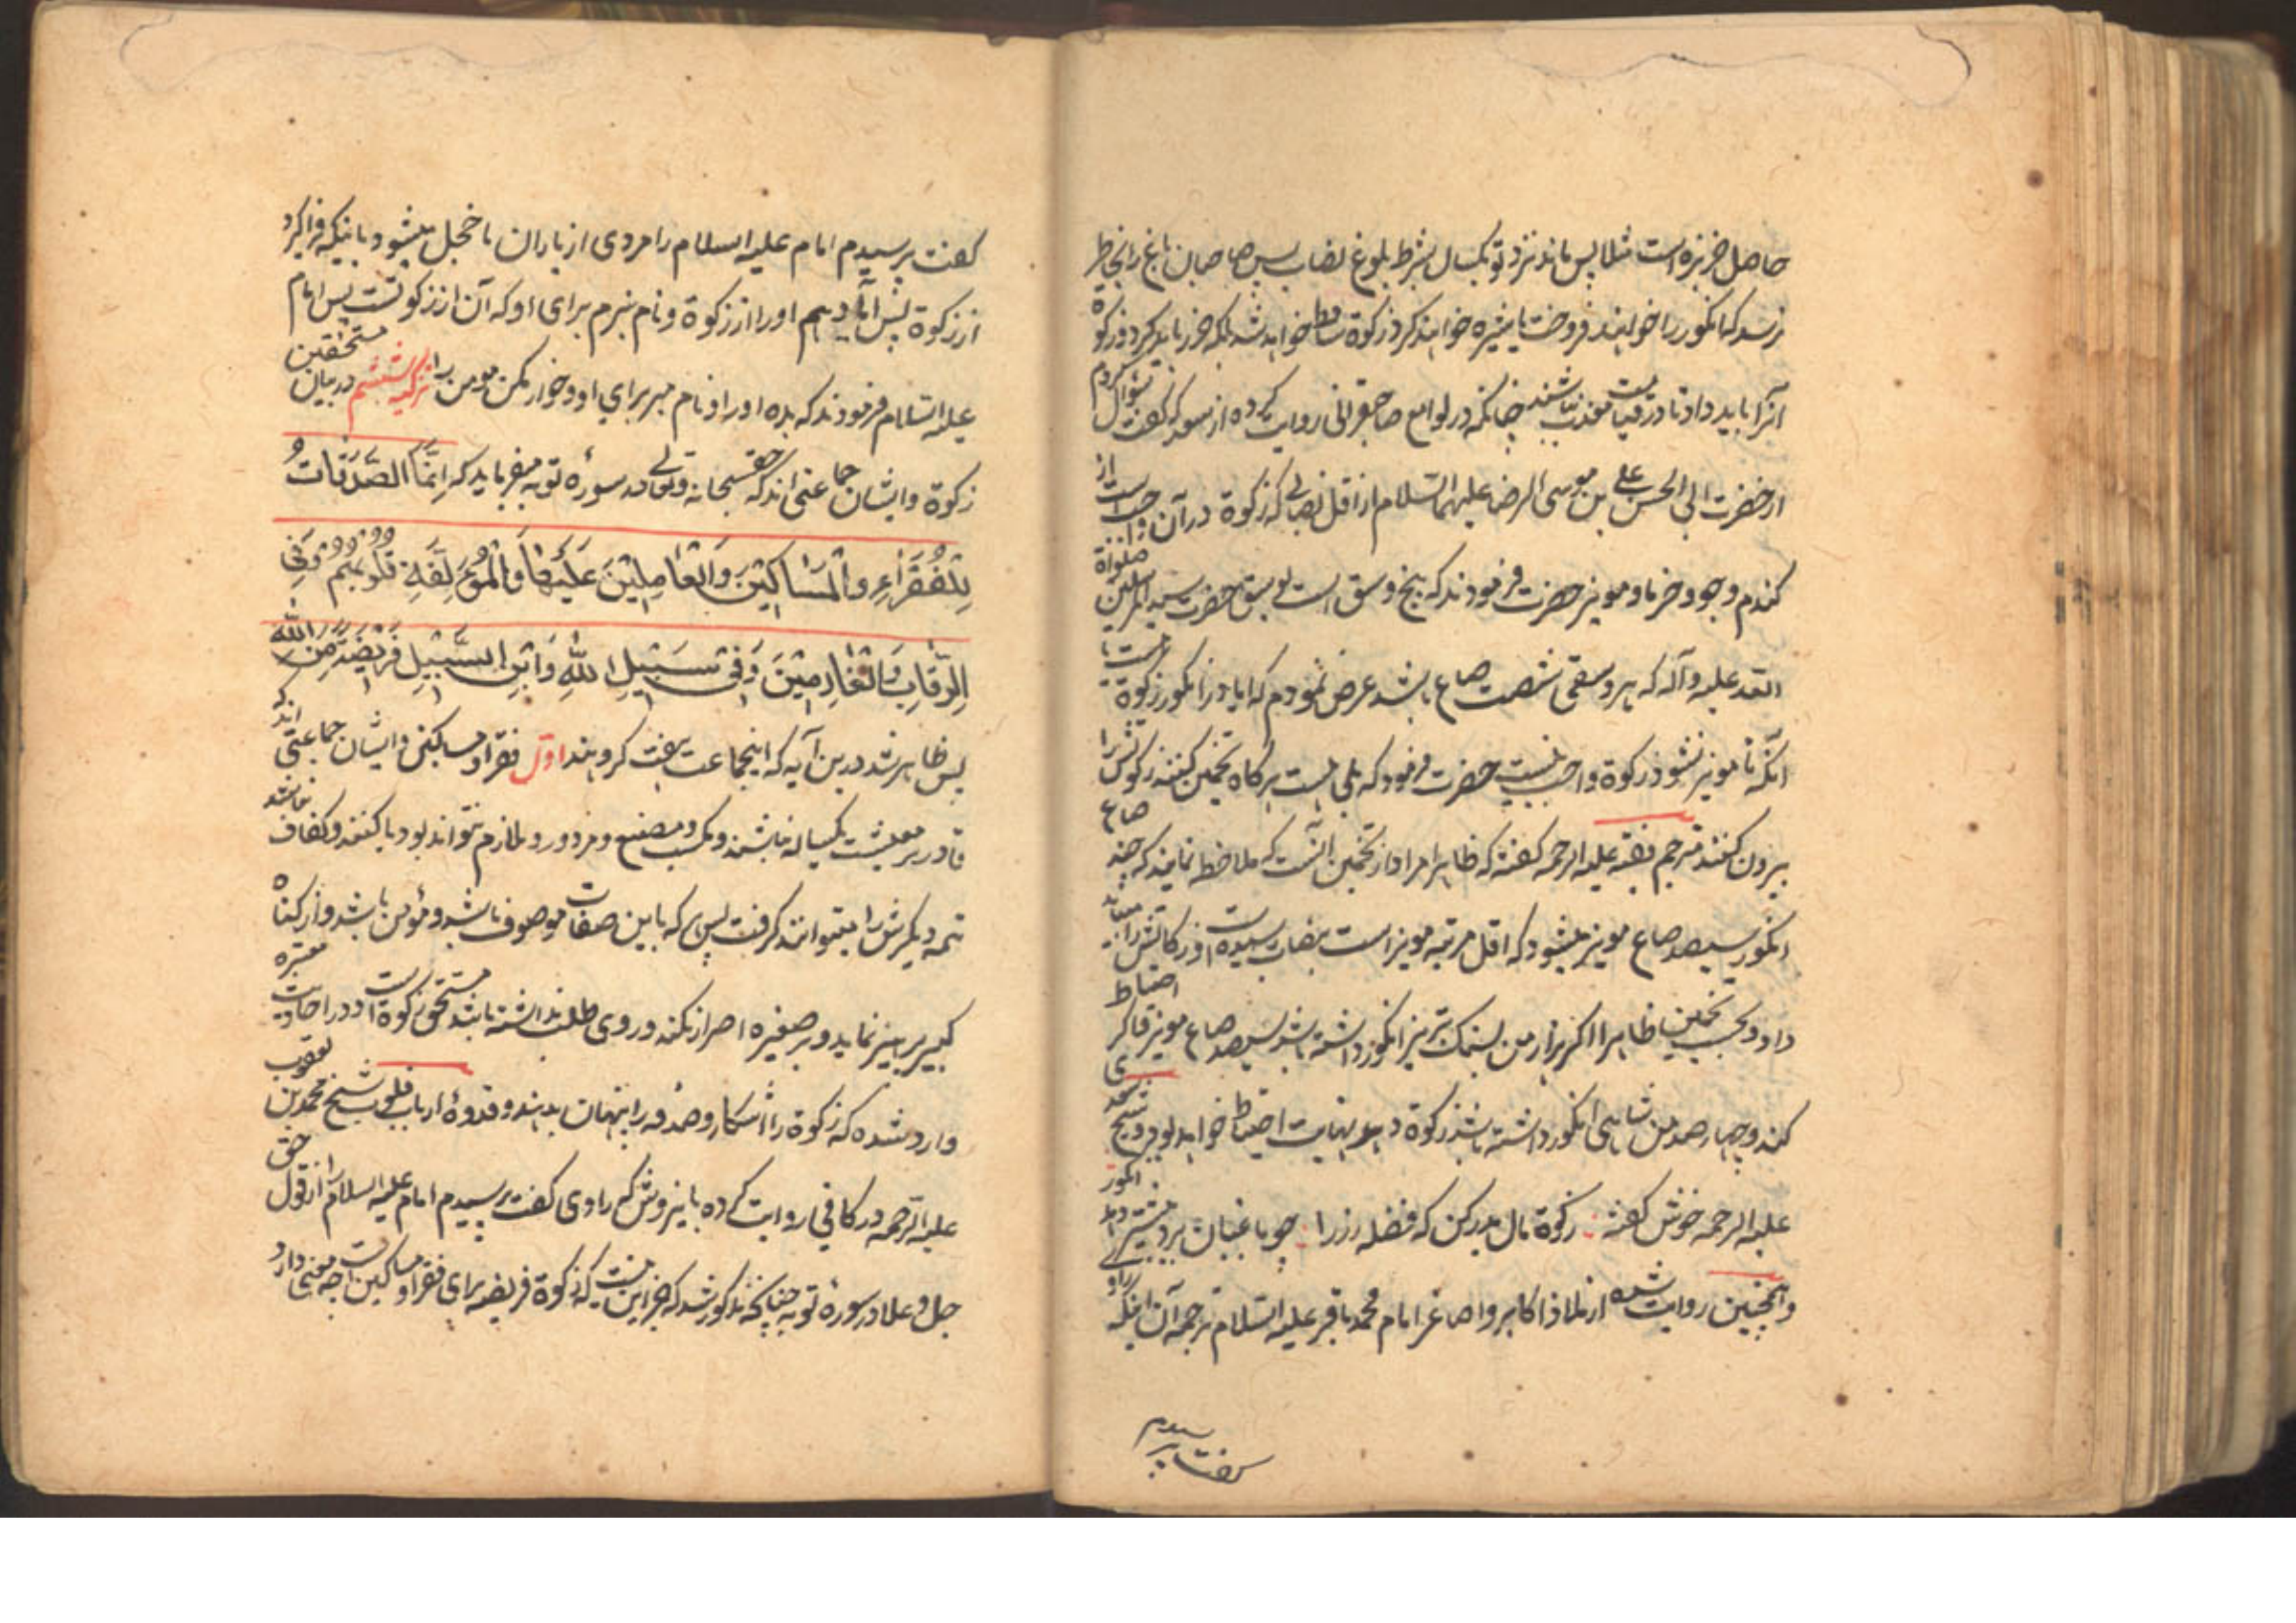 حاصل خربزه است مثلا پس ماند نزد تو یکسال بشرط بلوغ نصاب پس صاحبان باغ را بخاطر
نرسد که انگور را خواهند فروخت یا شیره خواهند کرد زکوة ساقط خواهد شد بلکه حرز باید کرد و زکوة
آنرا باید داد تا در قیامت معذب نباشند چنانکه در لوامع صاحبقرانی روایت کرده از سعد که گفت سؤال کردم
از حضرت ابی الحسن علی بن موسی الرضا علیهما السلام از اقل نصابی که زکوة در آن واجب است از
گندم و جو و خرما و مویز حضرت فرمودند که پنج وسق است بوسق حضرت سید المرسلین صلواة
الله علیه و آله که هر وسقی شصت صاع باشد عرض نمودم که ایا در انگور زکوة هست یا
آنکه تا مویز نشود زکوة واجب نیست حضرت فرمود که بلی هست هرگاه تخمین کنند زکوتش را
بیرون کنند مترجم فقیه علیه الرحمه گفته که ظاهرا مراد از تخمین آنست که ملاحظه نمایند که چند صاع
انگور سیصد صاع مویز میشود که اقل مرتبه مویز است بنصاب رسیده است زکاتش را
داد و بحسب تخمین ظاهرا اگر هزار من بسنگ تبریز انگور داشته باشد سیصد صاع مویز و اگر احتیاط
کند و چهار صد من شاهی انگور داشته باشد زکوة دهد نهایت احتیاط خواهد بود و شیخ سعدی
علیه الرحمه خوش گفته زکوة مال بدر کن که فضله رز را چو باغبان برد بیشتر دهد انگور
و همچنین روایت شده از ملاذ اکابر و اصاغر امام محمد باقر علیه السلام ترجمه آن اینکه راوی
گفت پرسیدم
گفت پرسیدم امام علیه السلام را مردی از یاران ما خجل میشود باینکه فرا گیرد
از زکوة پس آیا دهیم او را از زکوة و نام نبرم برای او که آن از زکوتست پس امام
علیه السلام فرمودند که بده او را و نام مبر برای او و خوار مکن مومن را تزکیه ششم در بیان مستحقین
زکوة و ایشان جماعتی اند که حق سبحانه و تعالی در سوره توبه میفرماید که إِنَّمَا الصَّدَقَاتُ
لِلْفُقَرَاءِ وَالْمَسَاكِيْنَ وَالْعَامِلِيْنَ عَلَيْهَا وَالْمُؤَلَّفَةِ قُلُوبُهُمْ وَفِي
الرِّقَابِ وَالْغَارِمِيْنَ وَفِي سَبِيْلِ اللهِ وَابْنِ السَّبِيْلِ فَرِيْضَةً مِنَ اللهِ
پس ظاهر شد درین آیه که اینجماعت هفت گروهند اول فقرا و مساکین و ایشان جماعتی اند که
قادر بر معیشت یکساله نباشند و بکسب و صنیع و مزدور و ملازم نتواند بود یا کنند و کفاف نباشد
تتمه دیگرش را میتوانند گرفت پس هر که باین صفات موصوف باشد و مؤمن باشد و از گناه
کبیره پرهیز نماید و بر صغیره اصرار نکند و روی طلب نداشته باشد مستحق زکوة است و در احادیث معتبره
وارد شده که زکوة را آشکار و صدقه را پنهان بدهند و قدوۀ ارباب قلوب شیخ محمد بن یعقوب
علیه الرحمه در کافی روایت کرده باینروش که راوی گفت پرسیدم امام علیه السلام را از قول حق
جل و علا در سوره توبه چنانکه مذکور شد که جز این نیست که زکوة فریضه برای فقرا و مساکین است چه معنی دارد